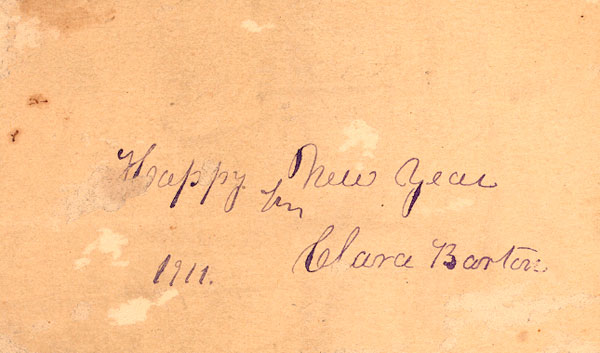 Happy New Year
1911. Clara Barton